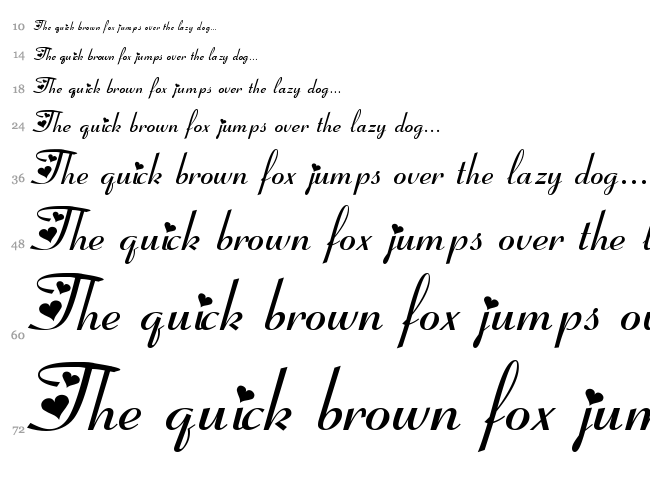 10 The quick brown fox jumps over the lazy dog...
14 The quick brown fox jumps over the lazy dog...
18 The quick brown fox jumps over the lazy dog...
24 The quick brown fox jumps over the lazy dog...
36 The quick brown fox jumps over the lazy dog...
48 The quick brown fox jumps over the l
60 The quick brown fox jumps ov
72 The quick brown fox jum